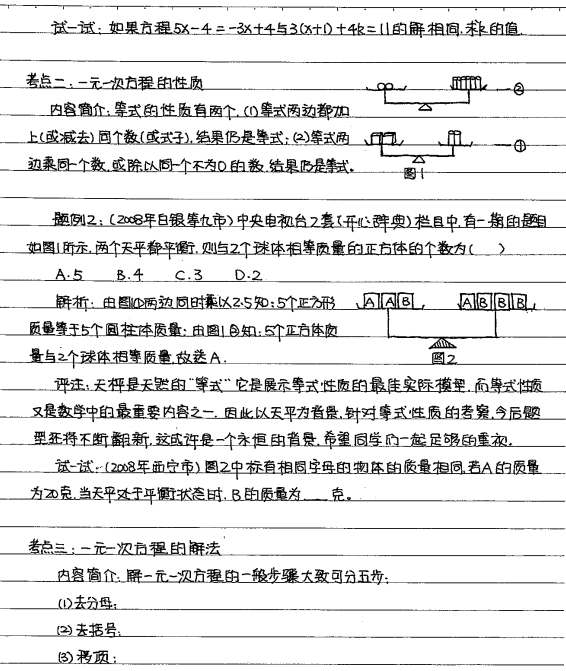 试一试：如果方程5x-4=-3x+4与3(x+1)+4k=11的解相同，求k的值.
考点二：一元一次方程的性质
②
内容简介：等式的性质有两个，(1)等式两边都加
上(或减去)同个数(或式子)，结果仍是等式；(2)等式两
①
边乘同一个数，或除以同一个不为0的数，结果仍是等式。
图1
题例2：(2008年白银等九市)中央电视台2套《开心辞典》栏目中，有一期的题目
如图1所示，两个天平都平衡，则与2个球体相等质量的正方体的个数为( )
A.5 B.4 C.3 D.2
解析：由图①两边同时乘以2.5知：5个正方形
A A B A B B B
质量等于5个圆柱体质量；由图②知：5个正方体质
量与2个球体相等质量，故选A.
图2
评注：天枰是天然的“等式”它是展示等式性质的最佳实际模型，而等式性质
又是数学中的最重要内容之一，因此以天平为背景，针对等式性质的考察，今后题
型还将不断翻新，这或许是一个永恒的背景，希望同学们一起足够的重视。
试一试：(2008年西宁市)图2中标有相同字母的物体的质量相同，若A的质量
为20克，当天平处于平衡状态时，B的质量为___克。
考点三：一元一次方程的解法
内容简介：解一元一次方程的一般步骤大致可分五步：
(1)去分母；
(2)去括号；
(3)移项；